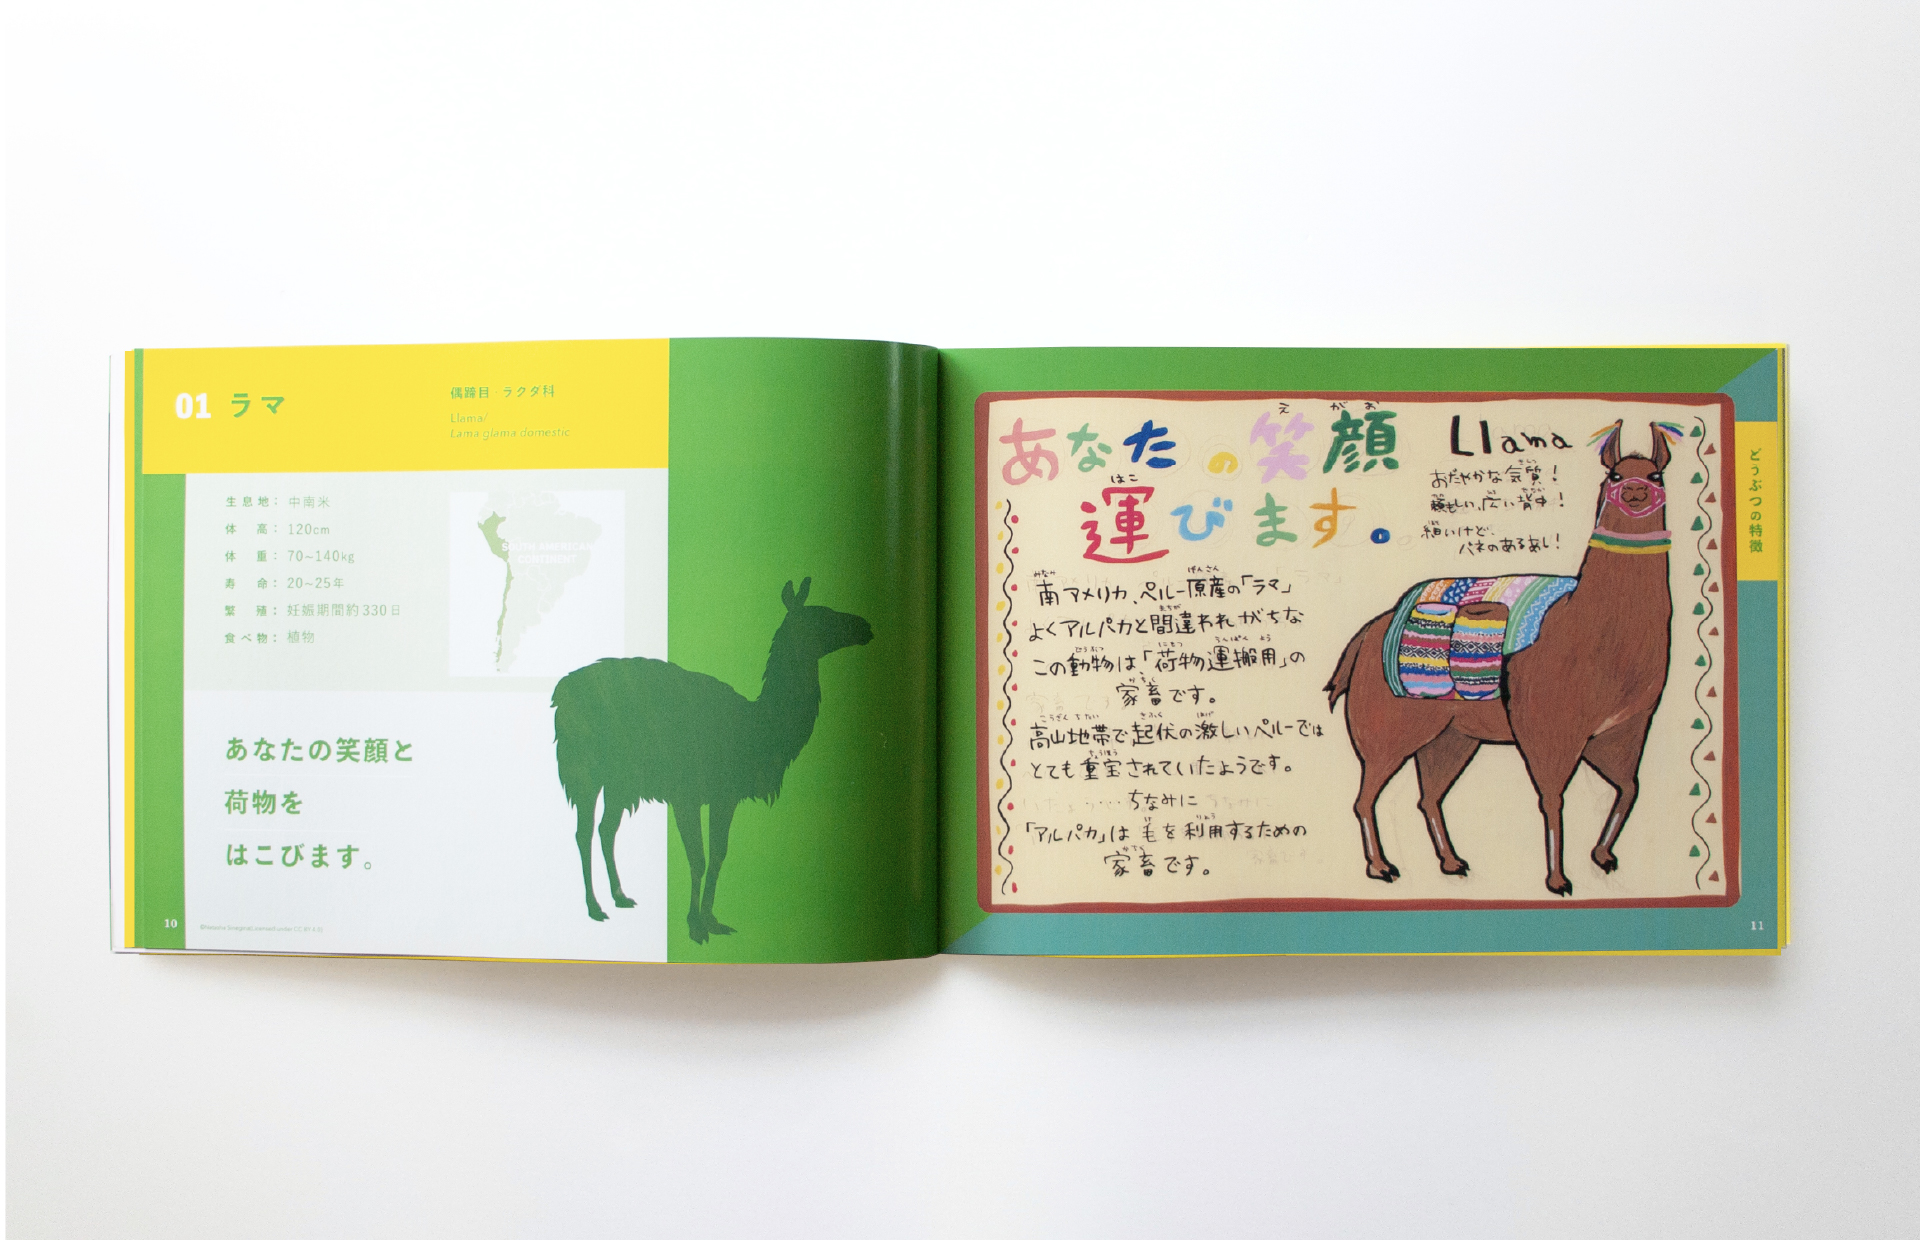 01 ラマ
偶蹄目・ラクダ科
Llama/
Lama glama domestic
生息地： 中南米
体　高： 120cm
体　重： 70~140kg
寿　命： 20~25年
繁　殖： 妊娠期間約330日
食べ物： 植物
SOUTH AMERICAN
CONTINENT
あなたの笑顔と
荷物を
はこびます。
10
えがお
あなたの笑顔
はこ
運びます。
Llama
おだやかな気質！
頼もしい、広い背中！
細いけど、
バネのあるあし！
みなみ げんさん
南アメリカ、ペルー原産の「ラマ」
まちが
よくアルパカと間違われがちな
どうぶつ にもつうんぱんよう
この動物は、「荷物運搬用」の
かちく
家畜です。
こうざんちたい きふく はげ
高山地帯で起伏の激しいペルーでは
ちょうほう
とても重宝されていたようです。
ちなみに
け りよう
「アルパカ」は毛を利用するための
かちく
家畜です。
どうぶつの特徴
11